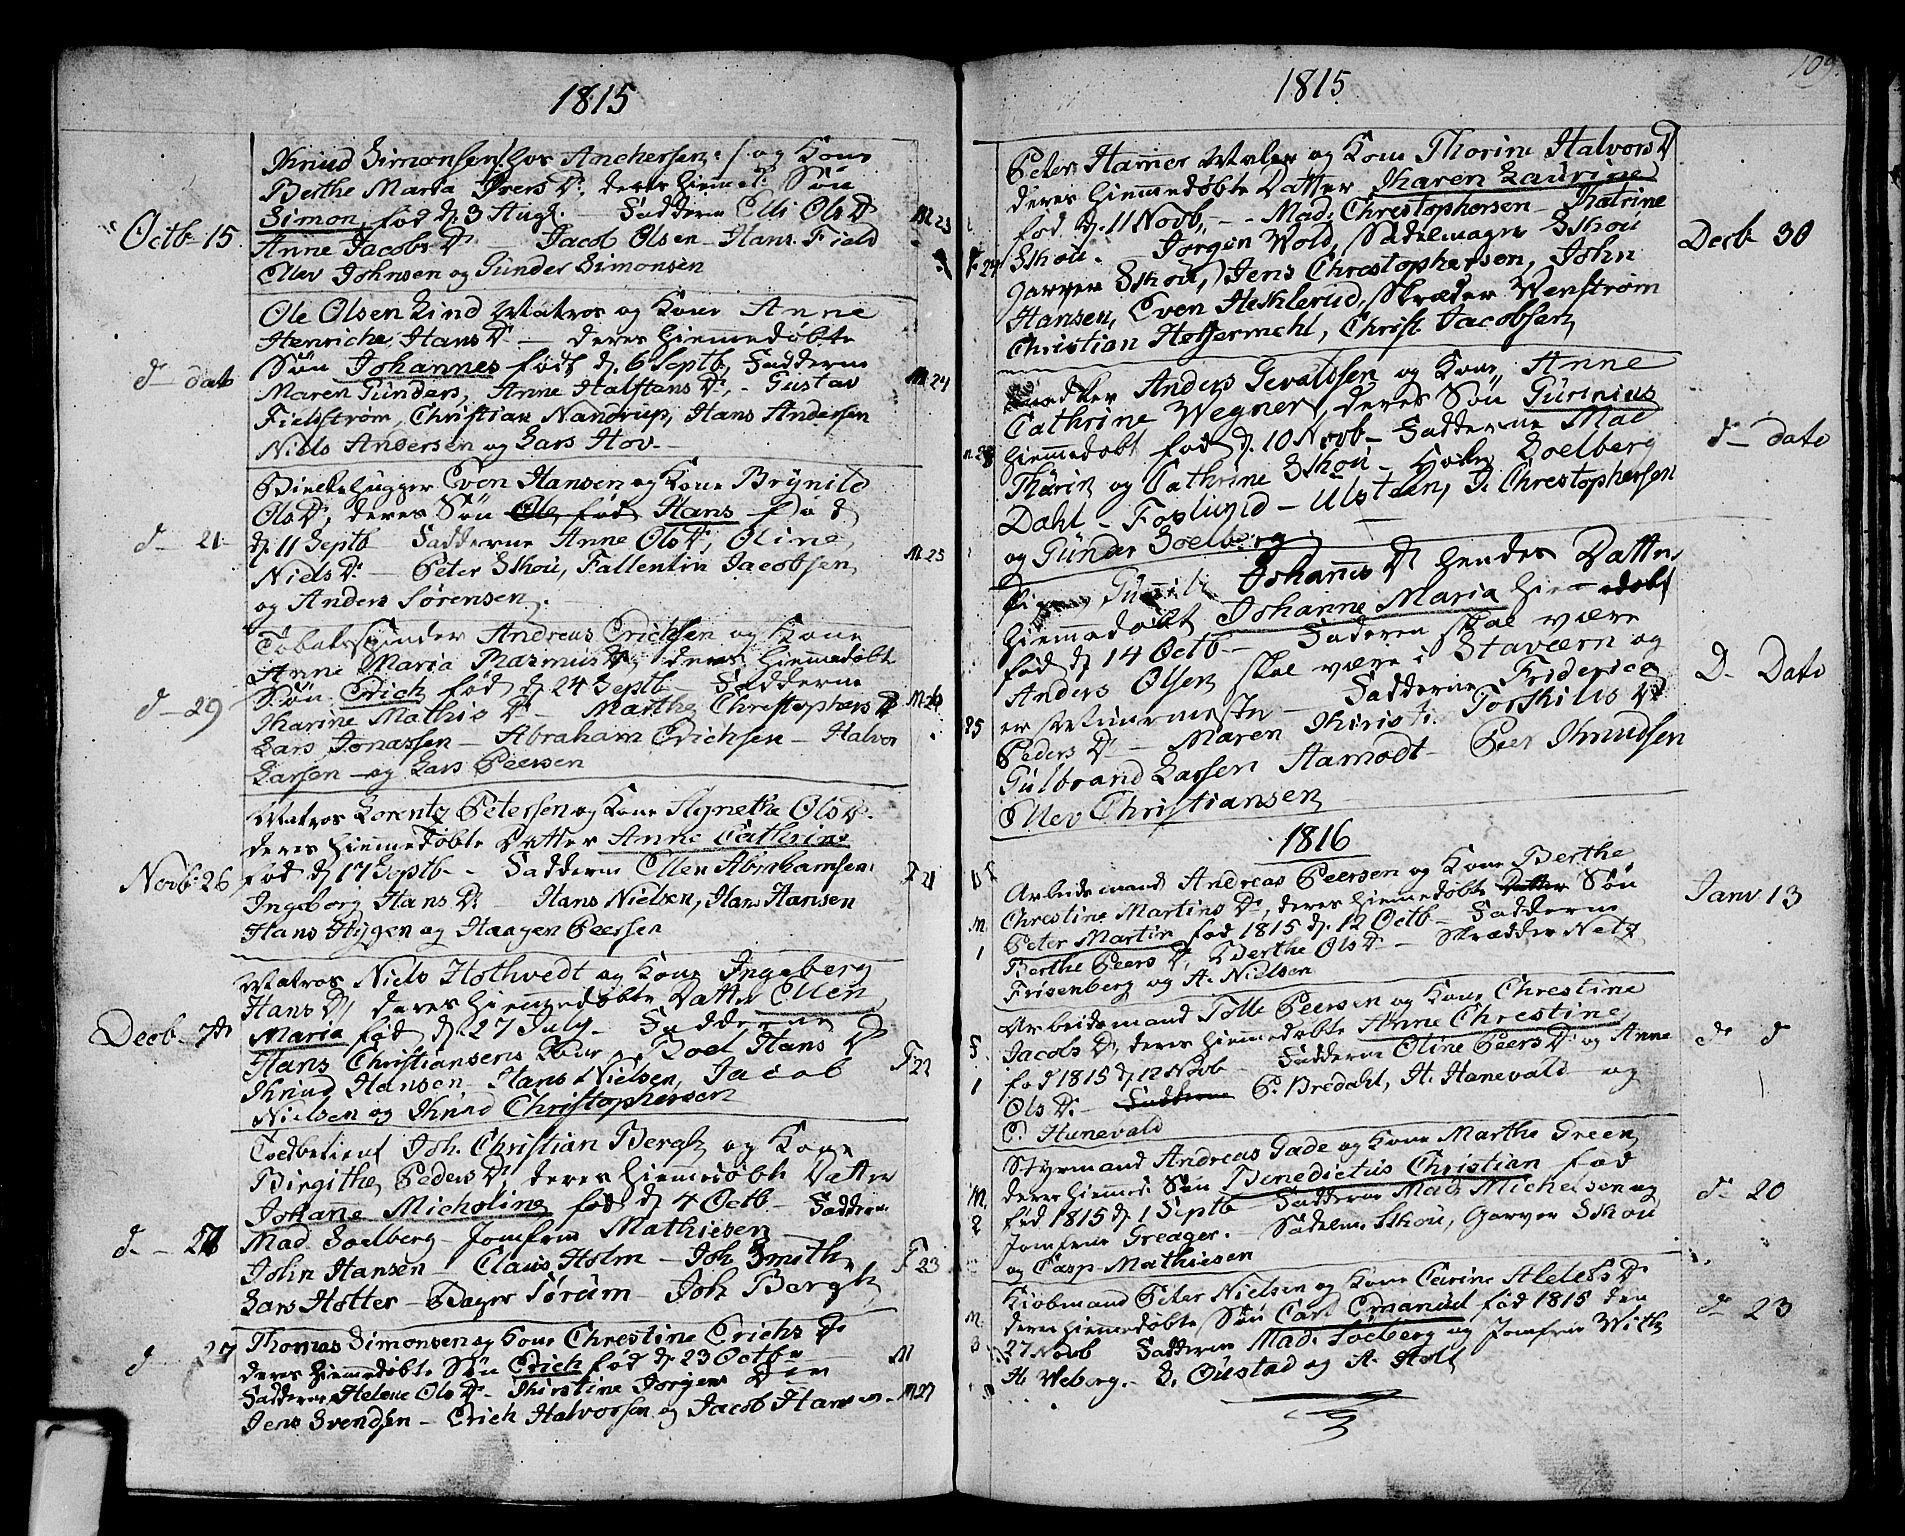 1815
Knud Simonsen /: hos Anchersen :/ og Kone
Berthe Maria Ivers D. deres hiemed. Søn
Octb 15 Simon, fød d. 3 Augs. — Fadderne Elli Ols D. M 23
Anne Jacobs D. — Jacob Olsen — Hans Field
Ellev Johnsen og Gunder Simonsen
Ole Olsen Lind Matros og Kone Anne
Henriche Hans D. — deres hiemmedøbte
d — dato Søn Johannes født d. 6 Septb, Fadderne M. 24
Maren Gunders, Anne Halftans D., — Gustav
Fieldstrøm, Christian Nandrup, Hans Andersen
Niels Andersen og Lars Hov. —
Even Hansen og Kone Brynild
Ols D., deres Søn Ole fød Hans Fød
d — 21 d. 11 Septb Fadderne Anne Ols D., Oline M. 25
Niels D. — Peter Skou, Fallentin Jacobsen,
og Anders Sørensen.
Tobakspinder Andreas Erichsen og Kone
Anne Maria Rasmus D., deres hiemmedøbte
Søn Erich fød d. 24 Septb Fadderne
d — 29 Karine Mathis D — Marthe Christophers D M. 26
Lars Jonassen — Abraham Erichsen — Halvor
Larsen — og Lars Peersen
Matros Lorentz Petersen og Kone Agnethe Ols D.
deres hiemmedøbte Datter Anne Cathrine
Novb. 26 fød d. 17 Septb — Fadderne Ellen Abrahamsen F 21
Ingeborg Hans D. Hans Nielsen, Hans Hansen
Hans Hygen og Haagen Peersen
Matros Niels Hothvedt og Kone Ingeberg
Hans D, deres hiemmedøbte Datter Ellen
Decb Maria fød d. 27 July — Fadderne
Hans Christiansens Kone, Roel Hans D F 22
Knud Hansen — Hans Nielsen, Jacob
Nielsen og Knud Christophersen
Joh. Christian Bergh og Kone
Birgithe Peders D, deres hiemmedøbte Datter
Johane Micholine fød d. 4 Octb — Fadderne
Mad. Soelberg — Jomfrue Mathiesen
John Hansen — Claus Holm — Joh Smith F 23
Lars Hotter — Bager Sørum — Joh Bergh
Thomas Simonsen og Kone Chrestine Erichs D
d 27 deres hiemmedøbte Søn Erich fød d. 23 Octb M
Fadderne Helene Ols D — Kirstine Jorgens D M 27
Jens Svendsen — Erich Halvorsen og Jacob Hansen —
109.
1815
Peter Hamer Maler og Kone Thorine Halvors D
deres hiemmedøbte Datter Karen Laurine
fød d. 11 Novb, — Mad. Chrestophersen — Katrine Decb 30
F. 24 Skou. Jorgen Wold, Sadelmager Skou
Garver Skou, Jens Chrestophersen, John
Hansen, Even Heklerud, Skræder Wenstrøm
Christian Hesermehl, Christ. Jacobsen,
Anders Gevaldsen og Kone, Anne
Cathrine Wegner, deres Søn
hiemmedøbt fød d. 10 Novb — Fadderne Mad d — dato
Thurin og Cathrine Skou — Soelberg
Dahl — Foslund — Ulsteen, J. Chrestophersen
og Gunder Soelberg.
Johannis D hendes Datter
hiemmedøbt Johanne Maria
fød d. 14 Octb — Faderen skal være D — Dato
Anders Olsen skal være i Stavern og
er — Fadderne Friderica
25 Peders D. — Maren Kirsti. Torkilds D
Gulbrand Larsen Hamodt — Peer Knudsen
Ellev Christiansen
1816
Arbeidsmand Andreas Peersen og Kone Berthe
M. Chrestine Martins D, deres hiemmedøbte Datter Søn Janv 13
1 Peter Martin fød 1815 d. 12 Octb — Fadderne
Berthe Peers D, Berthe Ols D — Skrædder Netz
Frisenberg og A. Nielsen
Arbeidsmand Tolle Peersen og Kone Chrestine
F. Jacobs D, deres hiemmedøbte Anne Chrestine, d d
1 fød 1815 d. 12 Novb Fadderne Oline Peers D og Anne
Ols D. — Fadderne P. Bredahl, H. Hanevald — og
C. Hunevald
Styrmand Andreas Gade og Kone Marthe Green
M. deres hiemmed. Søn Benedictus Christian fød d — 20
2 fød 1815 d. 1 Septb — Fadderne Mad. Michelsen og
Jomfrue Greager. — Sadelm. Skou, Garver Skou
og Casp Mathiesen
Kiøbmand Peter Nielsen og Kone Carine
M. deres hiemmedøbte Søn Carl Emanuel fød 1815 den d 23
3 27 Novb Fadderne Mad. Soelberg og Jomfrue With
H. Weberg. — L. Oustad og A. Holt